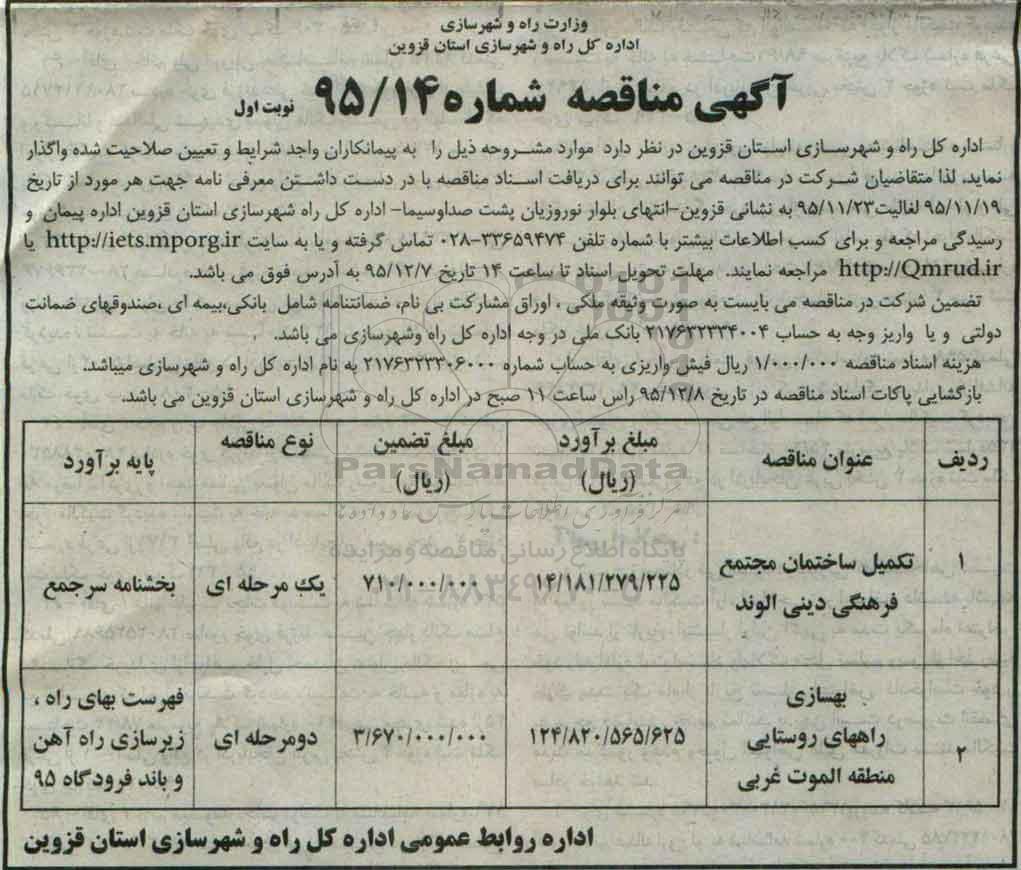 وزارت راه و شهرسازی
اداره کل راه و شهرسازی استان قزوین
آگهی مناقصه شماره ۹۵/۱۴ نوبت اول
اداره کل راه و شهرسازی استان قزوین در نظر دارد موارد مشروحه ذیل را به پیمانکاران واجد شرایط و تعیین صلاحیت شده واگذار
نماید. لذا متقاضیان شرکت در مناقصه می توانند برای دریافت اسناد مناقصه با در دست داشتن معرفی نامه جهت هر مورد از تاریخ
۹۵/۱۱/۱۹ لغایت ۹۵/۱۱/۲۳ به نشانی قزوین-انتهای بلوار نوروزیان پشت صداوسیما- اداره کل راه شهرسازی استان قزوین اداره پیمان و
رسیدگی مراجعه و برای کسب اطلاعات بیشتر با شماره تلفن ۳۳۶۵۹۴۷۴-۰۲۸ تماس گرفته و یا به سایت http://iets.mporg.ir یا
http://Qmrud.ir مراجعه نمایند. مهلت تحویل اسناد تا ساعت ۱۴ تاریخ ۹۵/۱۲/۷ به آدرس فوق می باشد.
تضمین شرکت در مناقصه می بایست به صورت وثیقه ملکی ، اوراق مشارکت بی نام، ضمانتنامه شامل بانکی،بیمه ای ،صندوقهای ضمانت
دولتی و یا واریز وجه به حساب ۲۱۷۶۳۲۳۳۴۰۰۴ بانک ملی در وجه اداره کل راه وشهرسازی می باشد.
هزینه اسناد مناقصه ۱/۰۰۰/۰۰۰ ریال فیش واریزی به حساب شماره ۲۱۷۶۳۳۳۳۰۶۰۰۰ به نام اداره کل راه و شهرسازی میباشد.
بازگشایی پاکات اسناد مناقصه در تاریخ ۹۵/۱۲/۸ راس ساعت ۱۱ صبح در اداره کل راه و شهرسازی استان قزوین می باشد.
ردیف عنوان مناقصه مبلغ برآورد (ریال) مبلغ تضمین (ریال) نوع مناقصه پایه برآورد
۱ تکمیل ساختمان مجتمع فرهنگی دینی الوند ۱۴/۱۸۱/۲۷۹/۲۲۵ ۷۱۰/۰۰۰/۰۰۰ یک مرحله ای بخشنامه سرجمع
۲ بهسازی راههای روستایی منطقه الموت غربی ۱۲۴/۸۲۰/۵۶۵/۶۲۵ ۳/۶۷۰/۰۰۰/۰۰۰ دومرحله ای فهرست بهای راه ، زیرسازی راه آهن و باند فرودگاه ۹۵
اداره روابط عمومی اداره کل راه و شهرسازی استان قزوین
ParsNamadData
پایگاه اطلاع رسانی مناقصه و مزایده